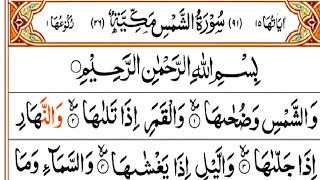 اٰيَاتُهَا ١٥ (٩١) سُوْرَةُ الشَّمْسِ مَكِّيَّةٌ (٢٦) رُكُوْعُهَا ١
بِسْمِ اللهِ الرَّحْمٰنِ الرَّحِيْمِ
وَالشَّمْسِ وَضُحٰىهَا ۝١ وَالْقَمَرِ اِذَا تَلٰىهَا ۝٢ وَالنَّهَارِ
اِذَا جَلّٰىهَا ۝٣ وَالَّيْلِ اِذَا يَغْشٰىهَا ۝٤ وَالسَّمَآءِ وَمَا